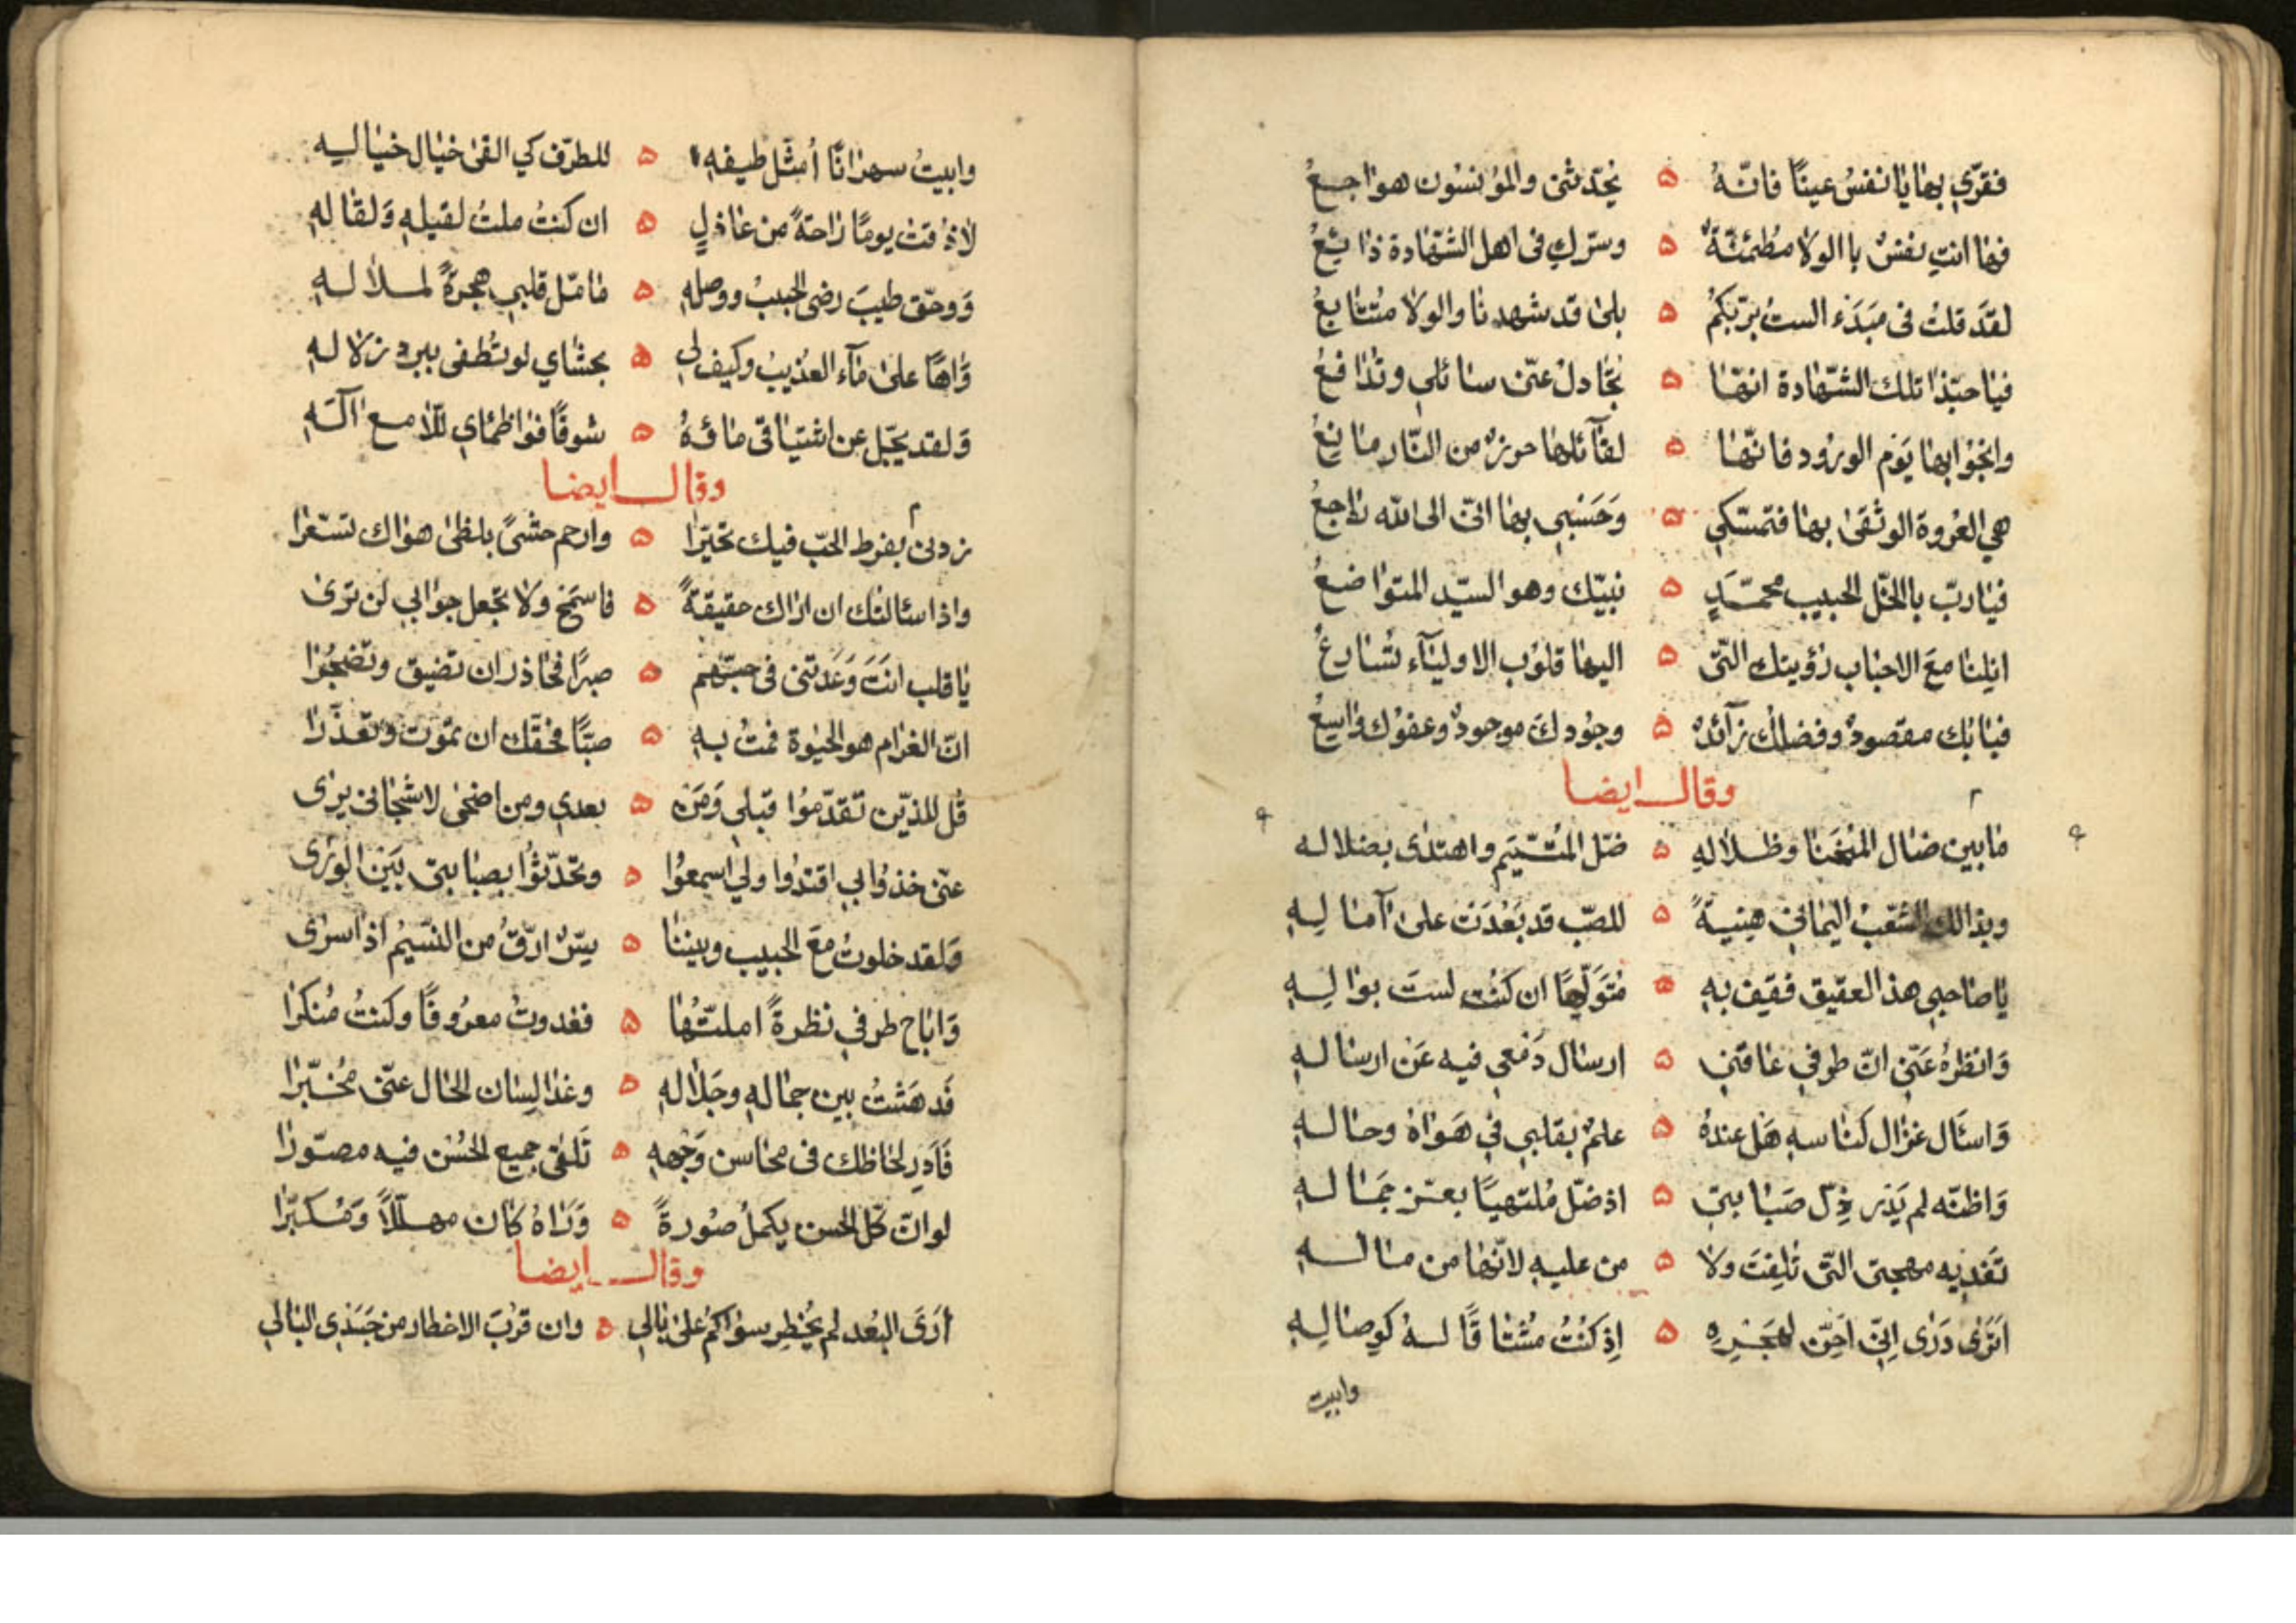 فقرّي بها يا نفسُ عينًا فانّهُ ه يحدّثني والمؤنسون هواجعُ
فها انتِ نفسٌ باالولا مطمئنّةٌ ه وسرّكِ في اهل الشّهادة ذايعُ
لقَد قلتُ في مَبدَءِ الستُ بربّكمُ ه بلى قد شهدنا والولا متتابعُ
فيا حبّذا تلك الشّهادة انها ه تجادل عنّى سائلي وتدافعُ
وانجوا بها يَوم الورود فانّها ه لقآئلها حرزٌ من النّار مانعُ
هي العُروة الوثقىٰ بها فتمسّكي ه وَحَسْبي بها انّي الى الله راجعُ
فيا ربّ باالخلّ الحبيب محمّدٍ ه نبيّك وهو السيّد المتواضعُ
انلنا معَ الاحباب رؤيتك التّى ه اليها قلوُب الاوليآء تسارعُ
فبابُك مقصودٌ وفضلُك زآئدٌ ه وجُودكَ موجودٌ وعفوُك واسِعُ
وقال ايضا
ما بين ضال المُنحَنا وظلالهِ ه ضلّ المُتيّم واهتدى بضلاله
وبذالك الشعْبْ اليماني منيةً ه للصّب قد بَعُدَت على آمالِهِ
يا صاحبي هذ العقيق فقِف بهِ ه مُتَوَلّهًا ان كنْت لستَ بوالِهِ
وَانظرهُ عَنّى انّ طرفي عاقني ه ارسال دَمعي فيه عَن ارسالهِ
وَاسئَال غزال كناسهِ هَل عندهُ ه علمٌ بقلبي في هَواهُ وحالهِ
وَاظنّه لم يَدْر ذِلّ صَبابتي ه اذ ضلّ مُلتهيًا بعزّ جَمالهِ
تَفديه مهجتى التّى تلِفت ولا ه من عليهِ لانّها من مالهِ
اَترى دَرى اِنّي اَحِنّ لهَجرِهِ ه اِذ كنتُ مشتاقًا لهُ كوِصالِهِ
وابيت
وابيتُ سهرانًا أمثّل طيفهِ ه للطرف كي القى خيال خياليه
لاذقتُ يومًا راحةً من عاذلٍ ه ان كنتُ ملتُ لقيلهِ وَلقالهِ
وَوحَقّ طيبَ رضى الحبيبُ ووصلهِ ه ما ملّ قلبي هجرةً لملالهِ
وَاهًا على مآء العُذيبُ وكيف لي ه بحشاي لو تُطفى ببرد زلالهِ
وَلقد يجّل عن اشتياقي مائهُ ه شوقًا فواظمأي للّامع آلهِ
وقال ايضا
زدني بفرط الحبّ فيك تحيّرا ه وارحم حشىً بلظى هواك تسعّرا
واذا سئالتُك ان اراك حقيقةً ه فاسمَح ولا تجعل جوابي لن ترى
يا قلب انتَ وَعَدتني في حبّهم ه صبرًا فحاذر ان تضيق وتضجُرا
انّ الغرام هو الحيوة فمتُ بهِ ه صبًّا فحقّك ان تموت وتعذرا
قُل للذّين تقدّموُا قبلي وَمَن ه بعدي ومن اضحى لاشجاني يرى
عنّى خذوا بي اقتدُوا ولي اسمعوُا ه وتحدّثوُا بصبابتى بَين الورى
وَلقد خلوتُ معَ الحبيب وبيننا ه سِرٌّ ارقّ من النسيمُ اذا سرى
وَاباح طرفي نظرةً املتّها ه فغدوتُ معروُفًا وكنتُ مُنكرا
فَدهَشتُ بين جماله وجَلاله ه وغدا لسان الحال عنّى مُخبّرا
فَاَدِر لحاظك في محاسن وَجهه ه تَلقى جميع الحُسُن فيه مصوّرا
لو انّ كلّ الحسن يكملُ صُورةً ه وَرَاهُ كان مهلّلاً وَمُكبّرا
وقال ايضا
أرَى البُعد لم يُخطِر سواكمُ على بالي ه وان قرّبَ الاخطار من جَسَدى البالي